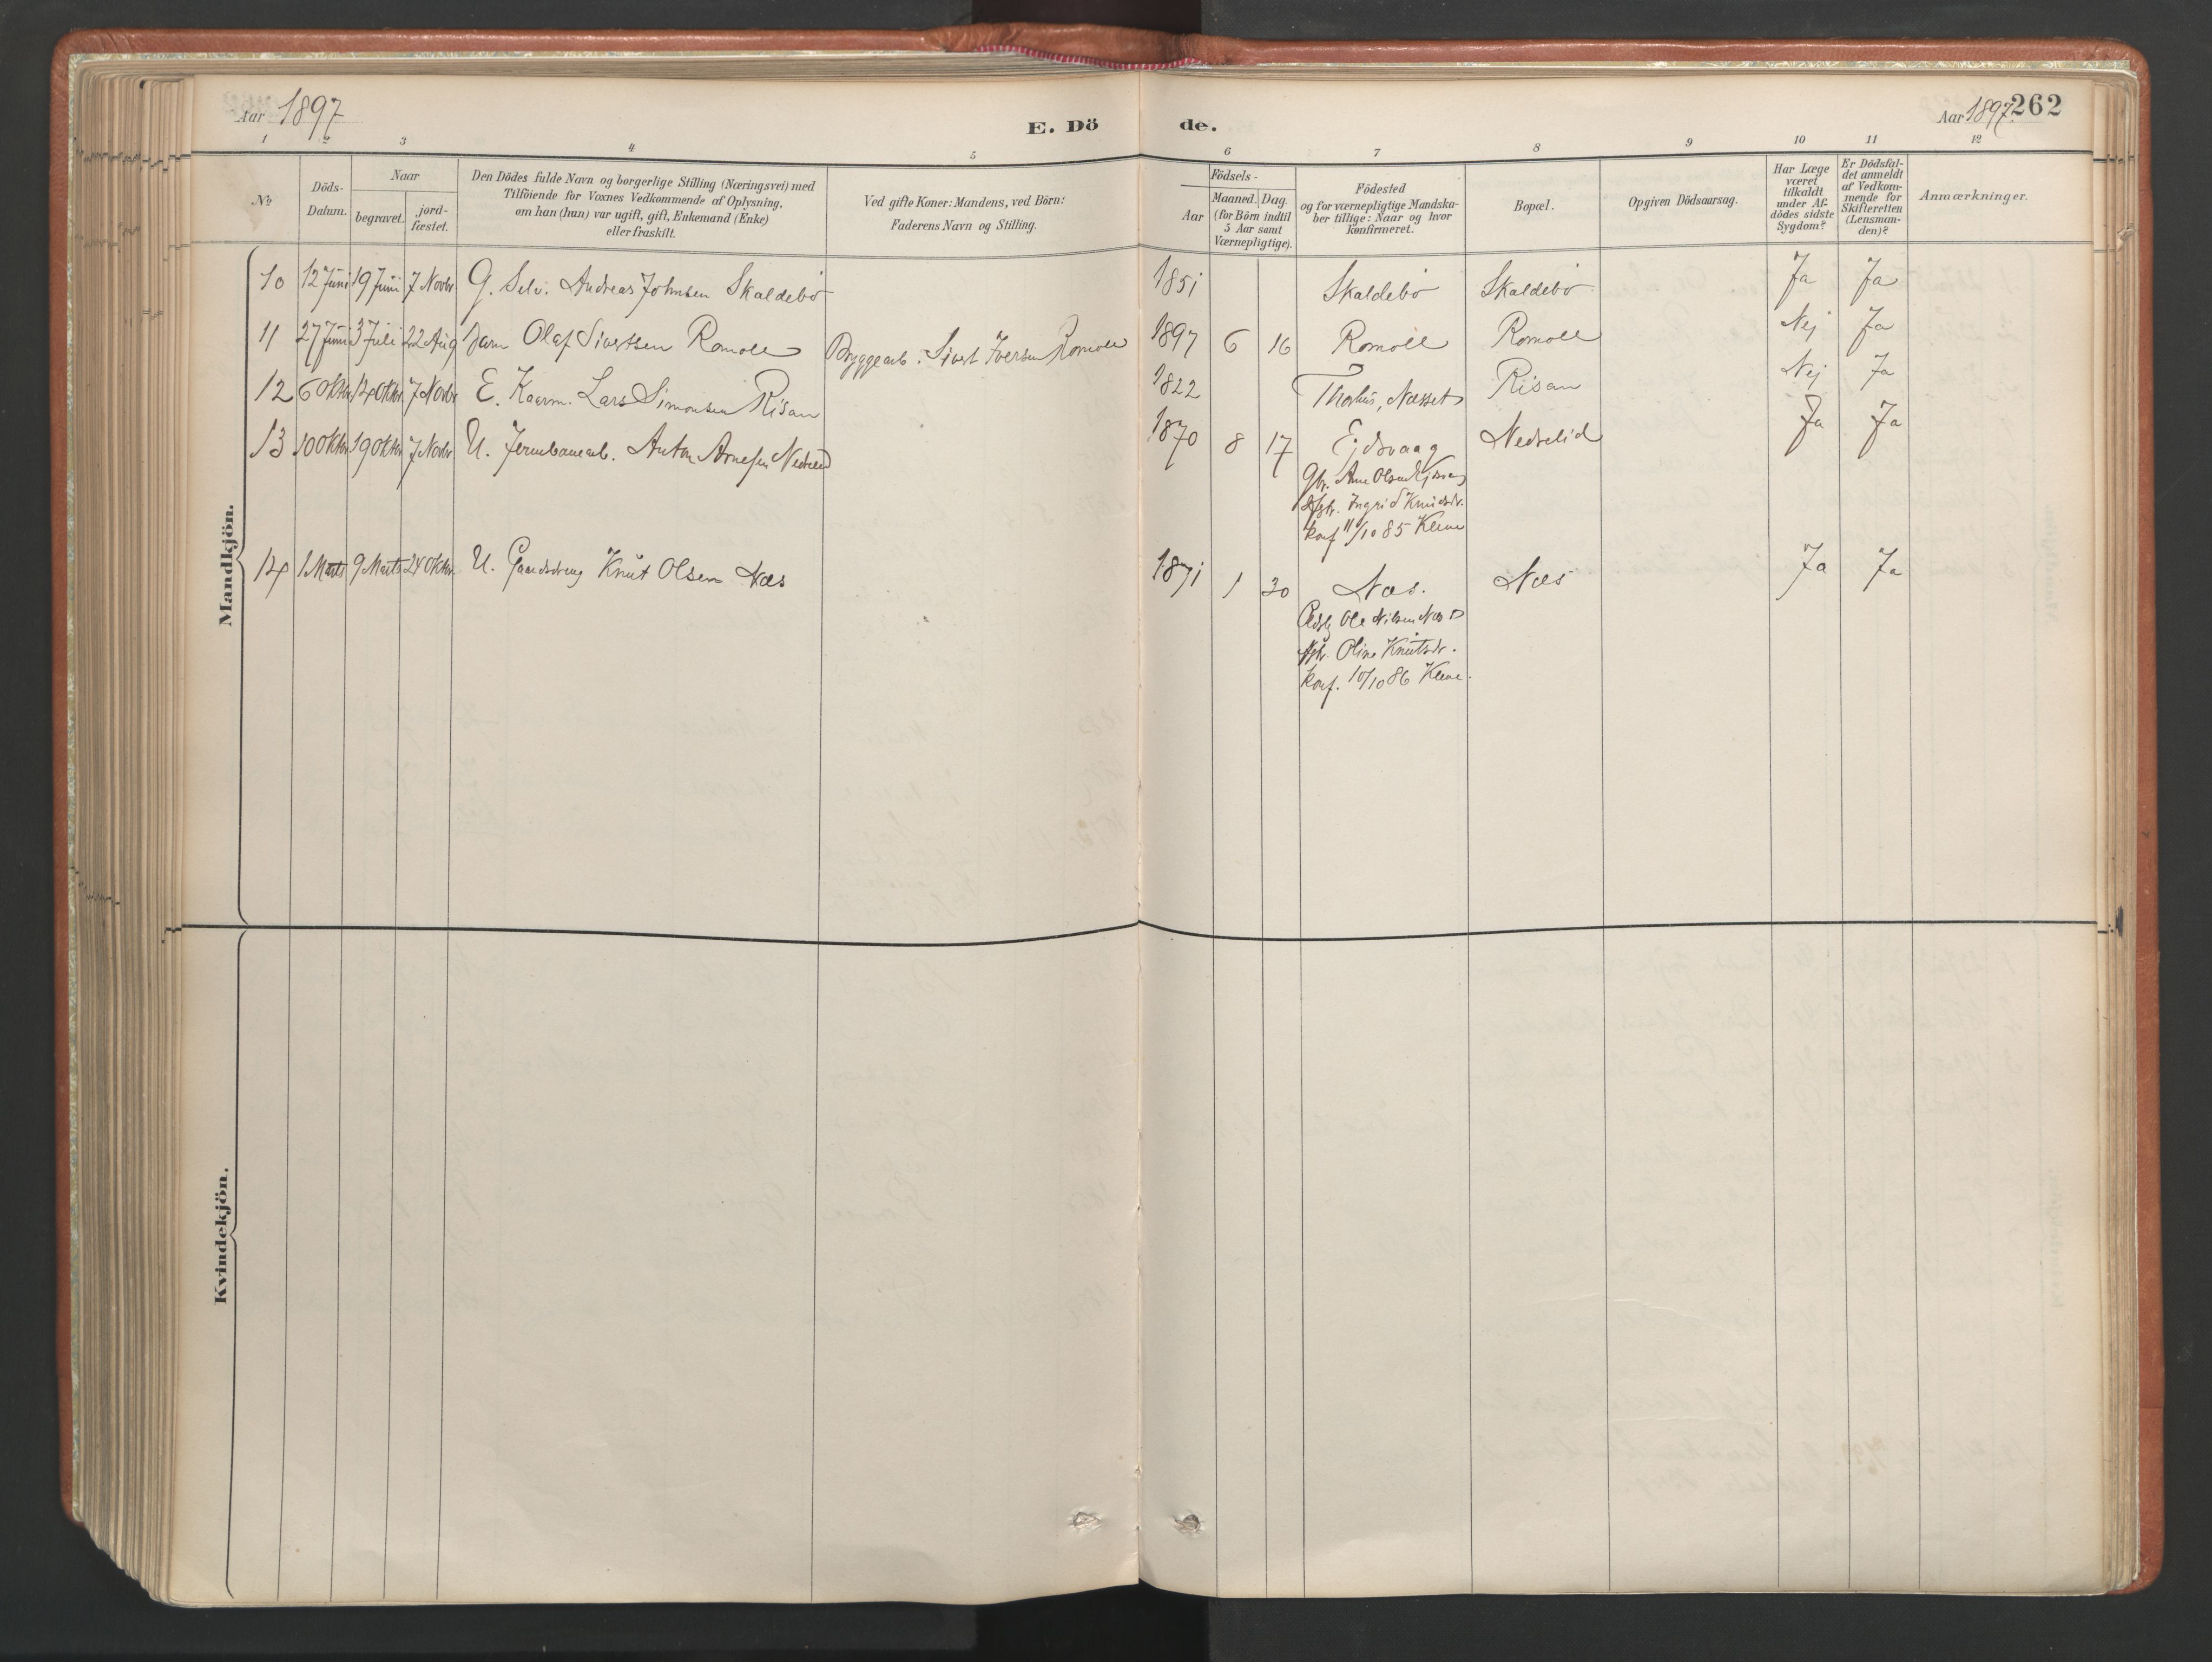 Aar 1897
E. Dö de.
Aar 1897. 262
1 2 3 4 5 6 7 8 9 10 11 12
№
Döds-
Datum.
Naar
begravet.
jord-
fæstet.
Den Dödes fulde Navn og borgerlige Stilling (Næringsvei) med
Tilföiende for Voxnes Vedkommende af Oplysning,
om han (hun) var ugift, gift, Enkemand (Enke)
eller fraskilt.
Ved gifte Koner: Mandens, ved Börn:
Faderens Navn og Stilling.
Födsels-
Aar
Maaned. Dag.
(for Börn indtil
5 Aar samt
Værnepligtige).
Födested
og for værnepligtige Mandska-
ber tillige: Naar og hvor
konfirmeret.
Bopæl.
Opgiven Dödsaarsag.
Har Læge
været
tilkaldt
under Af-
dödes sidste
Sygdom?
Er Dödsfal-
det anmeldt
af Vedkom-
mende for
Skifteretten
(Lensman-
den)?
Anmærkninger.
Mandkjön.
10 12 Juni 19 Juni 7 Novbr. G. Selv. Andreas Johnsen Skaldebø 1851 Skaldebø Skaldebø Ja Ja
11 27 Juni 3 Juli 22 Aug Barn Olaf Sivertsen Romoll Bryggearb. Sivert Iversen Romoll 1897 6 16 Romoll Romoll Nej Ja
12 6 Oktbr. 12 Oktbr. 7 Novbr. E. Kaarm. Lars Simonsen Risan 1822 Thorhus, Næsset Risan Nej Ja
13 10 Oktbr. 19 Oktbr. 7 Novbr. U. Jernbanearb. Anton Arnesen Nedrelid 1870 8 17 Ejdsvaag Nedrelid Ja Ja
Gbr. Arne Olsen Ejdsvaag
Ingrid Knudsdr.
konf 11/10 85 Kleve
14 1 Marts 9 Marts 24 Oktbr. U. Gaardsdreng Knut Olsen Næs 1871 1 30 Næs. Næs Ja Ja
Ole Nilsen Næs
Oline Knutsdr.
konf. 10/10 86 Kleve.
Kvindekjön.